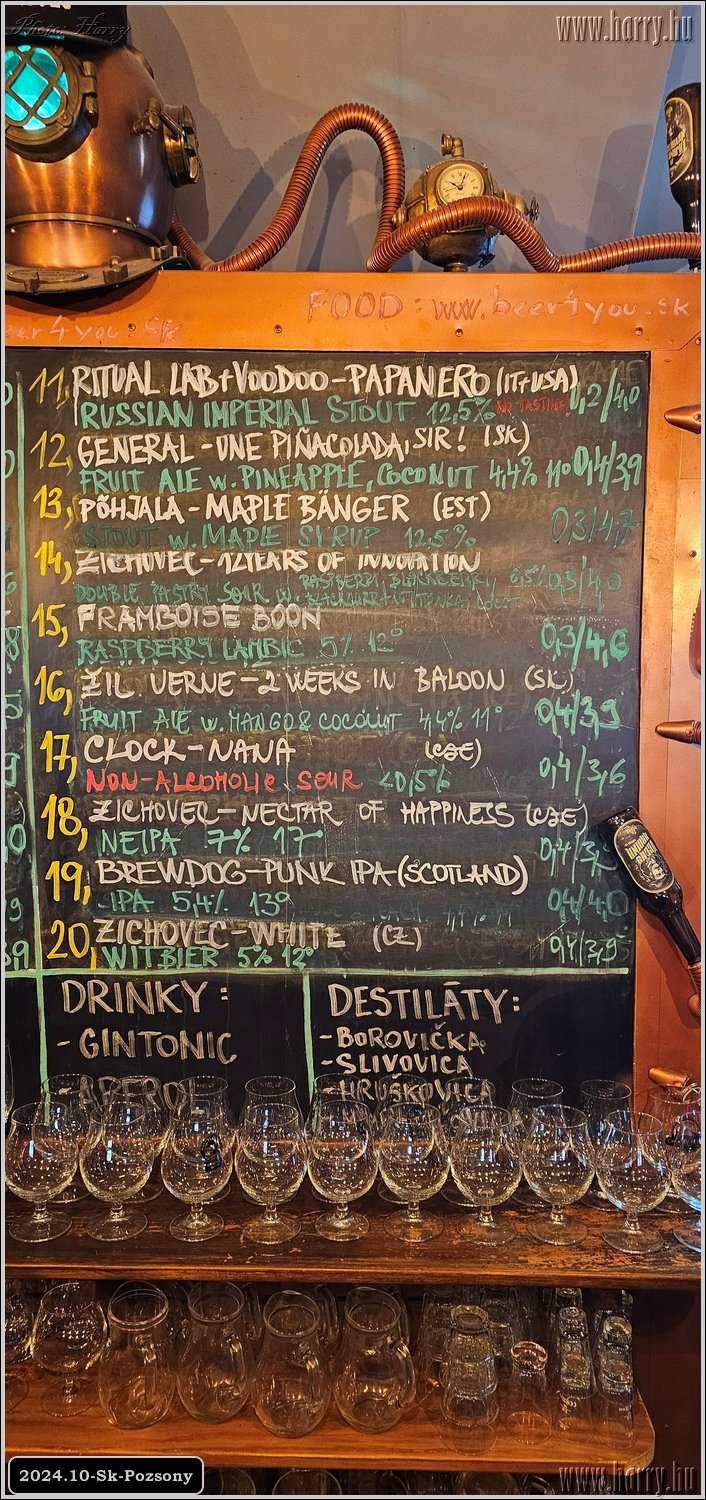 Photo: Harry
www.harry.hu
FOOD: www.beer4you.sk
beer4you.sk
11, RITUAL LAB+VOODOO-PAPANERO (IT+USA) 0,2/4,0
RUSSIAN IMPERIAL STOUT 12,5% NO TASTING!
12, GENERAL-UNE PIÑACOLADA, SIR! (SK)
FRUIT ALE w. PINEAPPLE, COCONUT 4,4% 11° 0,4/3,9
13, PÕHJALA-MAPLE BÄNGER (EST)
STOUT w. MAPLE SYRUP 12.5% 0,3/4,7
14, ZICHOVEC-12YEARS OF INNOVATION
DOUBLE PASTRY SOUR w. RASPBERRY, BLACKBERRY, 6,5% 0,3/4,0
15, FRAMBOISE BOON
RASPBERRY LAMBIC 5% 12° 0,3/4,6
16, ŽIL VERNE-2 WEEKS IN BALOON (SK)
FRUIT ALE w. MANGO & COCONUT 4,4% 11° 0,4/3,9
17, CLOCK-NANA (CZE)
NON-ALCOHOLIC SOUR <0,5% 0,4/3,6
18, ZICHOVEC-NECTAR OF HAPPINESS (CZE)
NEIPA 7% 17°
19, BREWDOG-PUNK IPA (SCOTLAND)
IPA 5,4% 13° 0,4/4,0
20, ZICHOVEC-WHITE (CZ)
WITBIER 5% 12° 0,4/3,9
DRINKY:
-GINTONIC
-APEROL
DESTILÁTY:
-BOROVIČKA
-SLIVOVICA
-HRUŠKOVICA
2024.10-Sk-Pozsony
www.harry.hu